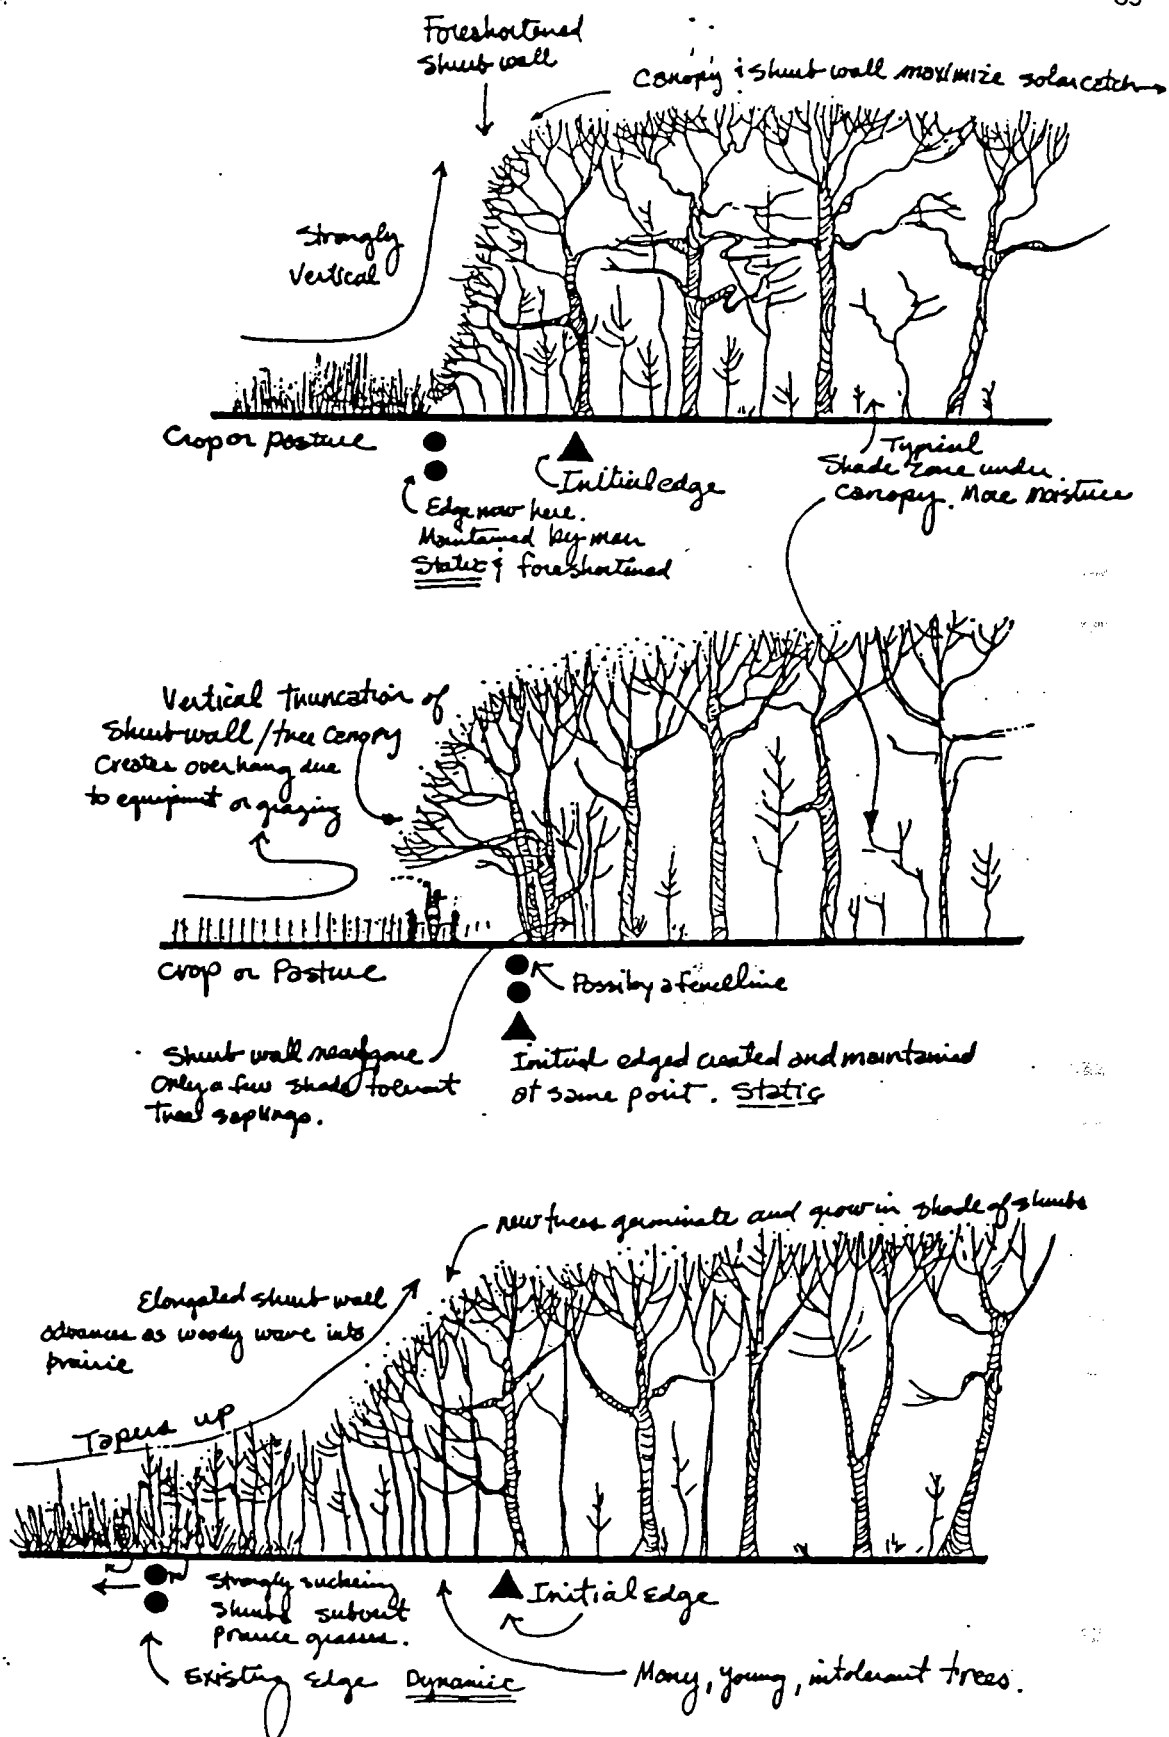 Foreshortened
Shrub wall
Canopy & shrub wall maximize solar catch
Strongly
Vertical
Crop or Pasture
Initial edge
Edge now here.
Maintained by man
Static & foreshortened
Typical
Shade zone under
Canopy. More moisture
Vertical truncation of
Shrub wall/tree canopy
Creates overhang due
to equipment or grazing
Crop or Pasture
Possiby a fenceline
Shrub wall near gone
Only a few shade tolerant
tree saplings.
Initial edged created and maintained
at same point. Static
New trees germinate and grow in shade of shrubs
Elongated shrub wall
advances as woody wave into
prairie
Tapers up
Strongly suckering
Shrubs subout
prairie grasses.
Initial Edge
Existing Edge Dynamic
Many, young, intolerant trees.